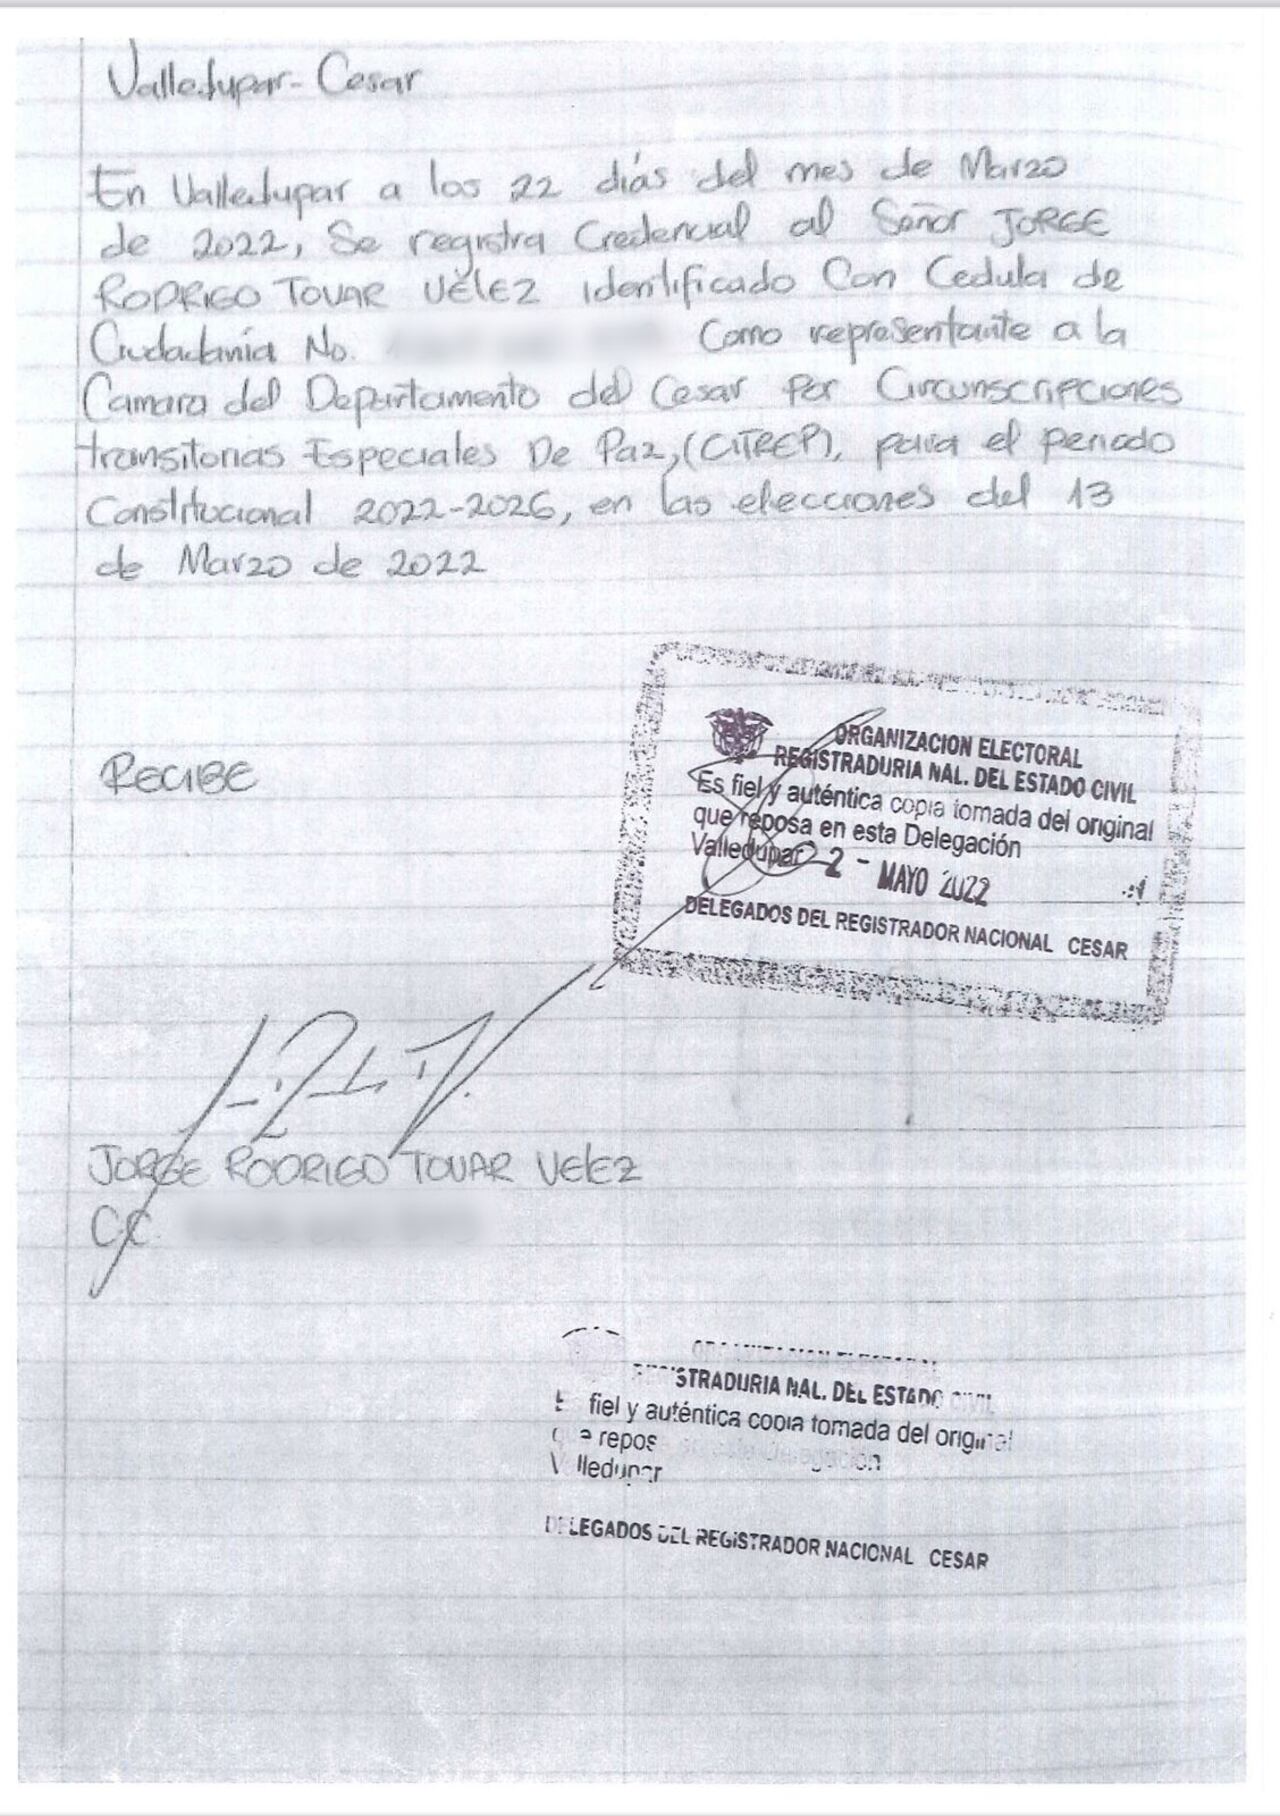 Valledupar - Cesar
En Valledupar a los 22 días del mes de Marzo
de 2022, Se registra Credencial al Señor JORGE
RODRIGO TOVAR VÉLEZ identificado Con Cedula de
Ciudadanía No. Como representante a la
Camara del Departamento del Cesar Por Circunscripciones
transitorias Especiales De Paz, (CITREP), para el periodo
Constitucional 2022-2026, en las elecciones del 13
de Marzo de 2022
ORGANIZACION ELECTORAL
REGISTRADURIA NAL. DEL ESTADO CIVIL
Es fiel y auténtica copia tomada del original
que reposa en esta Delegación
Valledupar 2 - MAYO 2022
DELEGADOS DEL REGISTRADOR NACIONAL CESAR
RECIBE
JORGE RODRIGO TOVAR VELEZ
C.C.
REGISTRADURIA NAL. DEL ESTADO CIVIL
Es fiel y auténtica copia tomada del original
que reposa en esta Delegación
Valledupar
DELEGADOS DEL REGISTRADOR NACIONAL CESAR